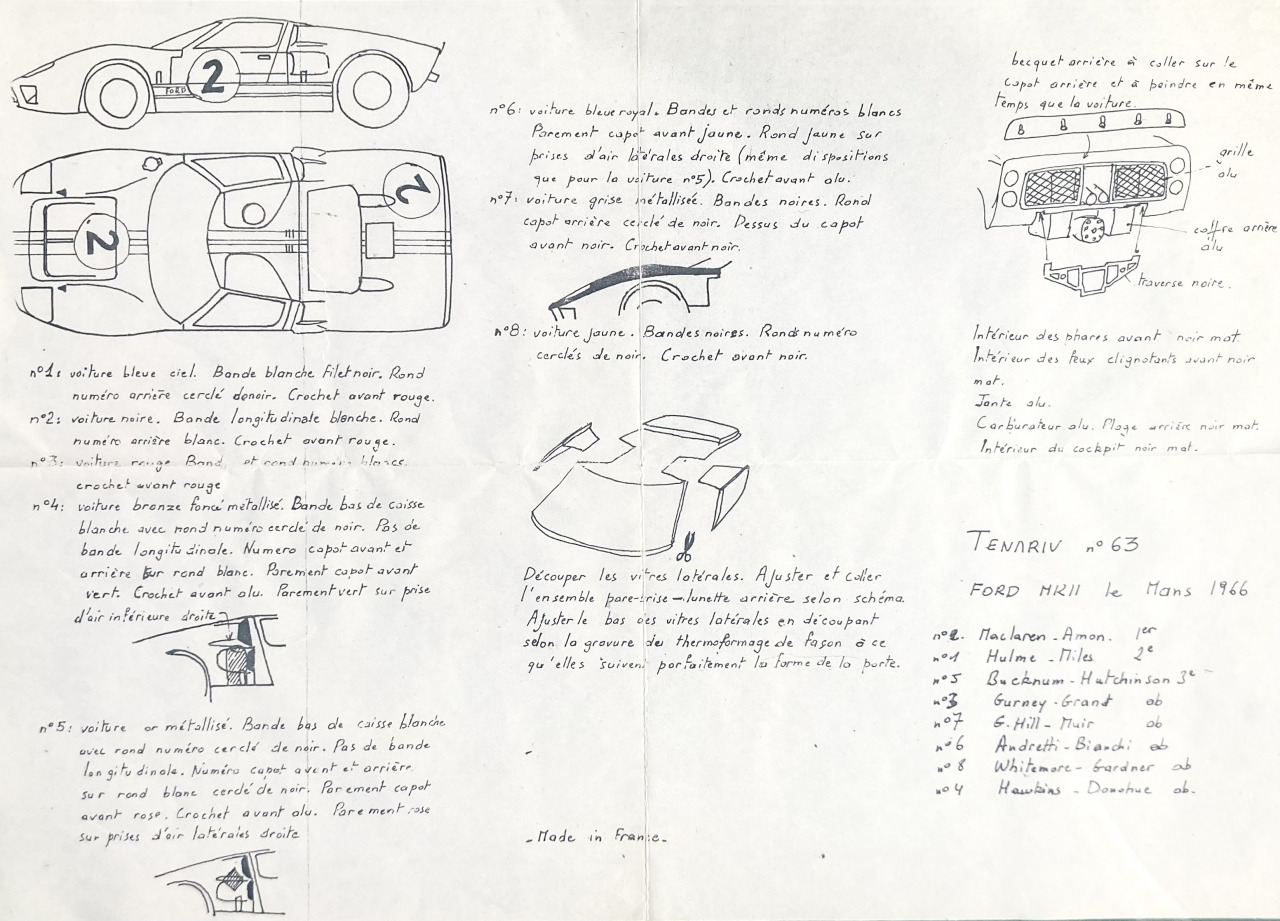 2
FORD
2
2
n°1: voiture bleue ciel. Bande blanche Filet noir. Rond
numéro arrière cerclé de noir. Crochet avant rouge.
n°2: voiture noire. Bande longitudinale blanche. Rond
numéro arrière blanc. Crochet avant rouge.
n°3: voiture rouge Band et rond numéro blancs.
crochet avant rouge
n°4: voiture bronze foncé métallisé. Bande bas de caisse
blanche avec rond numéro cerclé de noir. Pas de
bande longitudinale. Numero capot avant et
arrière sur rond blanc. Parement capot avant
vert. Crochet avant alu. Parement vert sur prise
d'air inférieure droite
n°5: voiture or métallisé. Bande bas de caisse blanche
avec rond numéro cerclé de noir. Pas de bande
longitudinale. Numéro capot avant et arrière
sur rond blanc cerclé de noir. Parement capot
avant rose. Crochet avant alu. Parement rose
sur prises d'air latérales droite
n°6: voiture bleue royal. Bandes et ronds numéros blancs
Parement capot avant jaune. Rond jaune sur
prises d'air latérales droite (même dispositions
que pour la voiture n°5). Crochet avant alu.
n°7: voiture grise métallisée. Bandes noires. Rond
capot arrière cerclé de noir. Dessus du capot
avant noir. Crochet avant noir.
n°8: voiture jaune. Bandes noires. Ronds numéro
cerclés de noir. Crochet avant noir.
Découper les vitres latérales. Ajuster et coller
l'ensemble pare-brise - lunette arrière selon schéma.
Ajuster le bas des vitres latérales en découpant
selon la gravure du thermoformage de façon à ce
qu'elles suivent parfaitement la forme de la porte.
- Made in France -
becquet arrière à coller sur le
capot arrière et à peindre en même
temps que la voiture.
grille
alu
coffre arrière
alu
traverse noire.
Intérieur des phares avant noir mat.
Intérieur des feux clignotants avant noir
mat.
Jante alu.
Carburateur alu. Plage arrière noir mat.
Intérieur du cockpit noir mat.
TENARIV n°63
FORD MKII le Mans 1966
n°2. Maclaren - Amon. 1er
n°1 Hulme - Miles 2e
n°5 Bucknum - Hutchinson 3e
n°3 Gurney - Grant ab
n°7 G. Hill - Muir ab
n°6 Andretti - Bianchi ab
n°8 Whitemore - Gardner ab
n°4 Hawkins - Donohue ab.